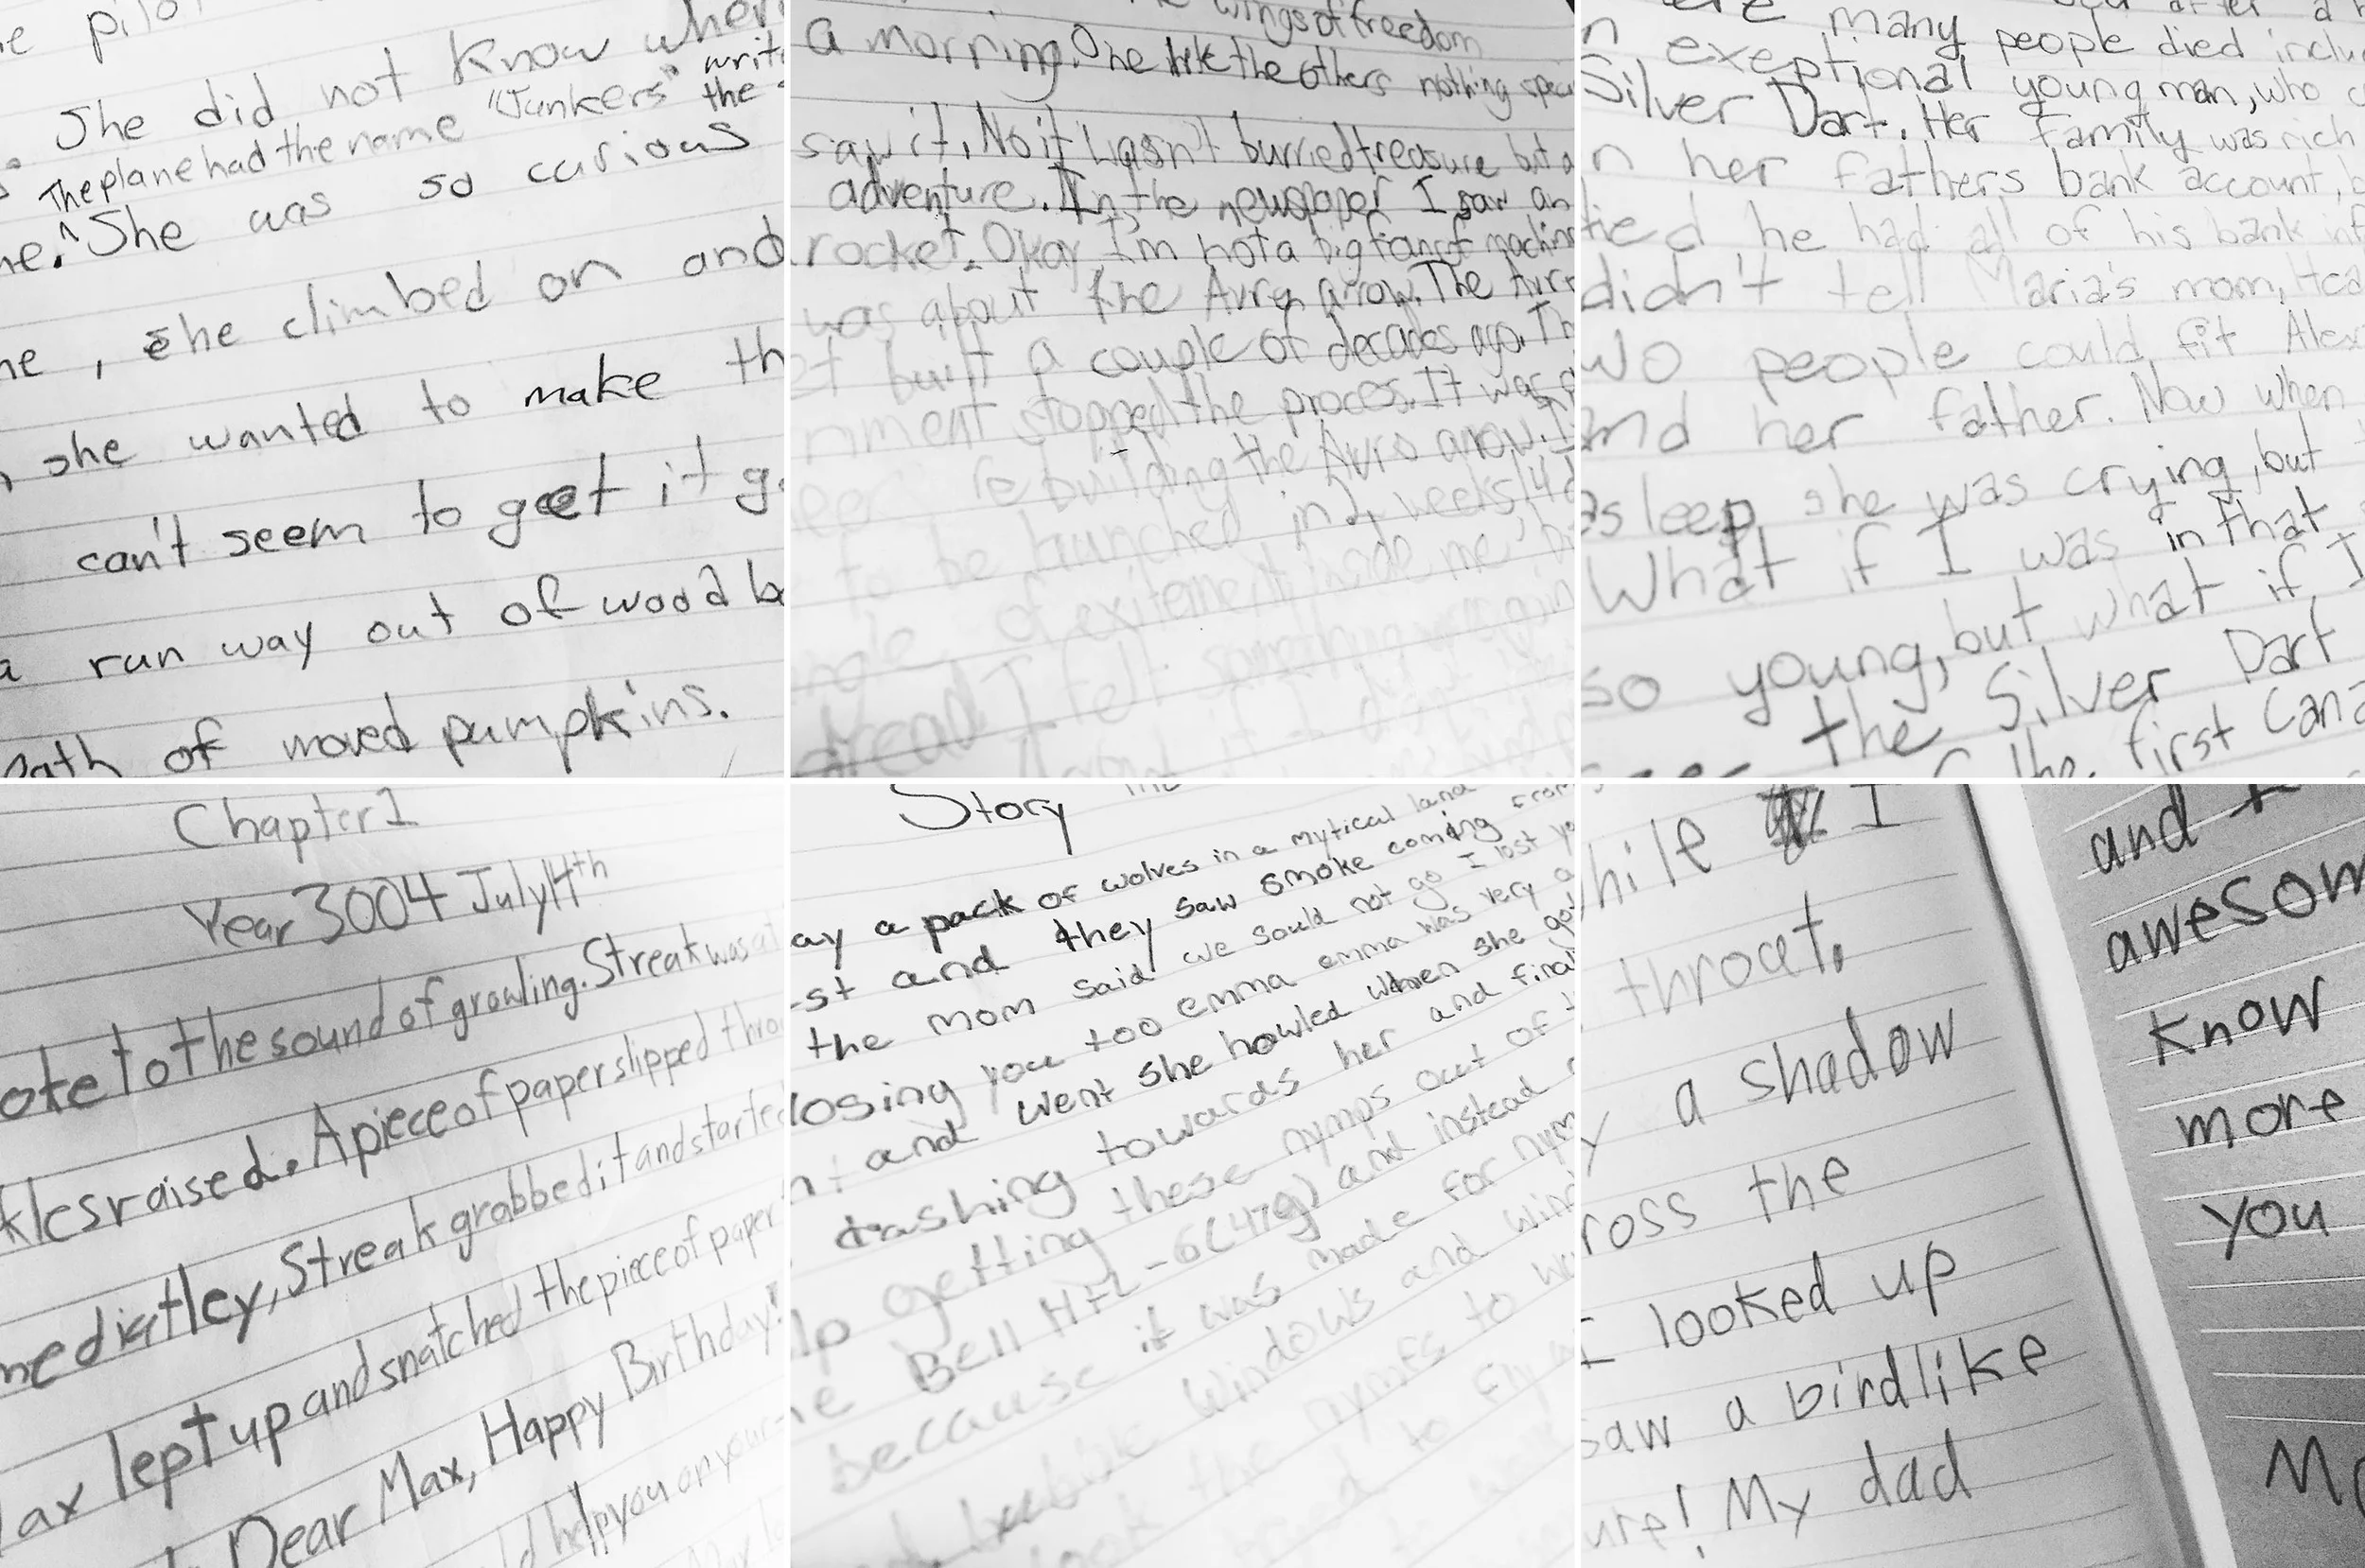 e pilo
She did not know wher
The plane had the name "Junkers" write
the
ne. She was so curious
ne, she climbed on and
she wanted to make th
can't seem to get it g
a run way out of wood b
path of moved pumpkins.
wings of freedom
a morning. One like the others nothing speci
saw it, No it wasn't burried treasure but a
adventure. In the newspaper I saw an
rocket. Okay I'm not a big fan of machin
was about the Avro arrow. The Avro
et built a couple of decades ago. Th
nment stopped the process. It was
rebuilding the Avro arrow. I
to be launched in 2 weeks
of exitement inside me
dread I felt something
many people died inclu
n exeptional young man, who
Silver Dart. Her family was rich
n her fathers bank account, b
tied he had all of his bank inf
didn't tell Maria's mom,
wo people could fit Alex
and her father. Now when
asleep she was crying, but
What if I was in that
so young, but what if I
the Silver Dart
the first Cana
Chapter 1
Year 3004 July 14th
oke to the sound of growling. Streak was at
kles raised. A piece of paper slipped thro
mediatley, Streak grabbed it and started
ax lept up and snatched the piece of paper
Dear Max, Happy Birthday!
help you on your
Story
ay a pack of wolves in a mytical land
st and they saw smoke coming from
the mom said we sould not go I lost yo
losing you too emma emma was very a
and went she howled when she got
dashing towards her and final
lp getting these nymps out of t
e Bell HFL-6(47g) and instead
because it was made for nym
windows and win
the nymfs to w
to fly
hile I
throat.
y a shadow
ross the
I looked up
saw a birdlike
ure! My dad
and
awesom
know
more
you